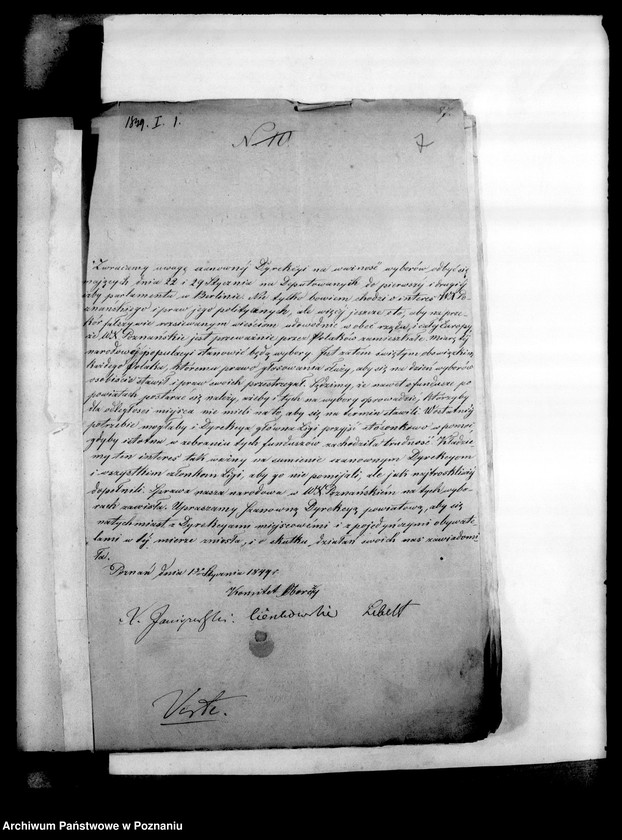 1849. I. 1.
N 10
7
Zwracamy uwagę szanownéj Dyrekcyi na ważność wyborów odbyć się
mających dnia 22 i 29 Stycznia na Deputowanych do pierwszéj i drugiéj
izby parlamentu w Berlinie. Nie tylko bowiem chodzi o interes W.X. Po-
znańskiego i praw jego politycznych, ale więcéj jeszcze o to, aby na prze-
kór fałszywie rozsiewanym wieściom udowodnić w obec rządu i całéj Europy,
że W.X. Poznańskie jest przeważnie przez Polaków zamieszkałe. Miarę téj
narodowéj populacyi stanowić będą wybory. Jest zatem świętym obowiązkiem
każdego Polaka, któremu prawo głosowania służy, aby się na dzień wyborów
osobiście stawił i praw swoich przestrzegał. Sądzimy, że nawet o fundusze po
powiatach postarać się należy, ażeby i tych na wybory sprowadzić, którzyby
dla odległości miejsca nie mieli na to, aby się na termin stawili. W ostatniéj
potrzebie mogłaby i Dyrekcya główna Ligi przyjść stosunkowo w pomoc,
gdyby istotna w zebraniu tych funduszów zachodziła trudność. Kładzie-
my ten interes tak ważny na sumienie szanownym Dyrekcyom
i wszystkim członkom Ligi, aby go nie pomijali, ale jak najtroskliwiéj
dopełnili. Sprawa nasza narodowa w W.X. Poznańskiém na tych wybo-
rach zawisła. Upraszamy Szanowną Dyrekcyą powiatową, aby się
natychmiast z Dyrekcyami miejscowémi i z pojedynczymi obywate-
lami w téj mierze zniosła, i o skutku działań swoich nas zawiadomi-
ła.
Poznań dnia 1go Stycznia 1849 r.
Komitet
X. Janiszewski. Cieszkowski Libelt
Verte.
Archiwum Państwowe w Poznaniu